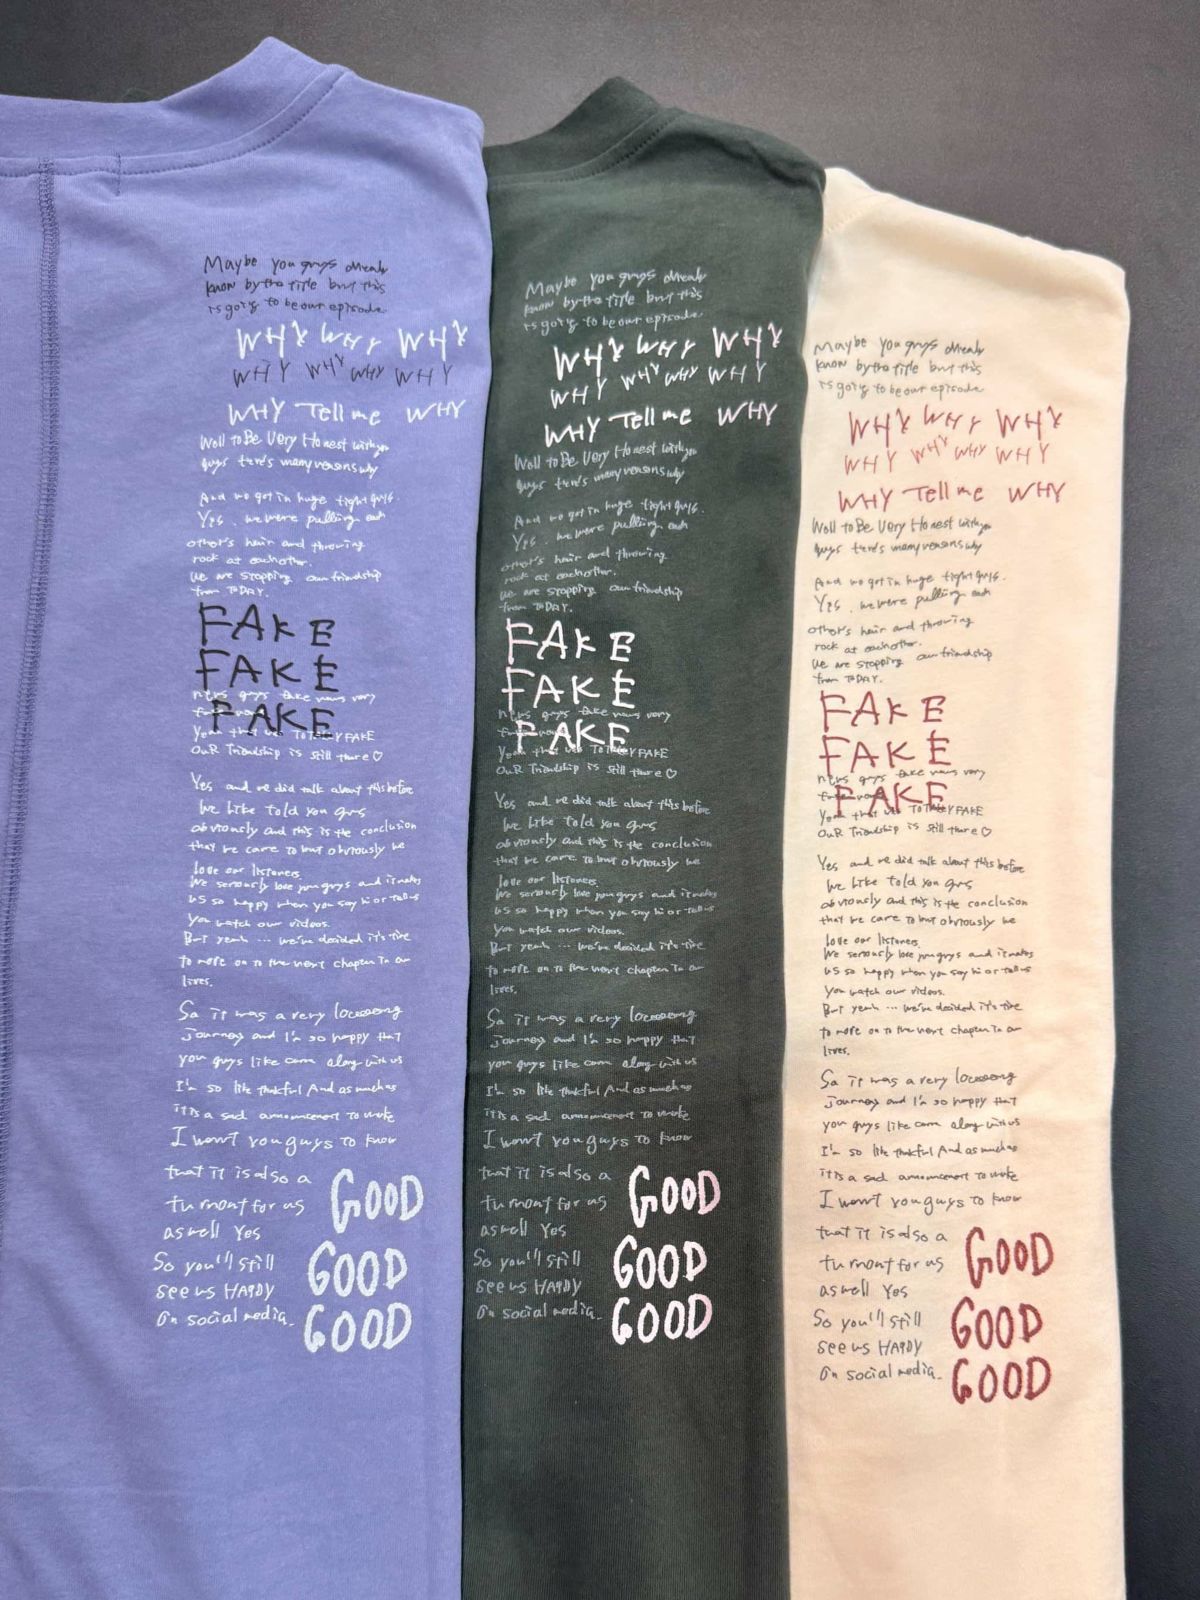 Maybe you guys already
know by the title but this
is going to be our episode
WHY WHY WHY
WHY WHY WHY WHY
WHY Tell me WHY
Well to Be Very Honest with you
guys there's many reasons why
And we got in huge fight guys.
Yes. we were pulling each
other's hair and throwing
rock at eachother.
We are stopping our friendship
from TODAY.
FAKE
FAKE
news guys fake news very
FAKE
Yeah that was TOTALLY FAKE
OuR Friendship is still there♡
Yes and we did talk about this before
We like told you guys
obviously and this is the conclusion
that we came to but obviously we
love our listeners.
We seriously love you guys and it makes
us so happy when you say hi or tell us
You watch our videos.
But yeah ... we've decided it's time
to move on to the next chapter in our
lives.
So it was a very looooong
journey and I'm so happy that
you guys like came along with us
I'm so like thankful And as much as
it is a sad announcement to make
I want you guys to know
that it is also a
GOOD
as well Yes
So you'll still
GOOD
see us HARDY
On social media.
GOOD
Maybe you guys already
know by the title but this
is going to be our episode
WHY WHY WHY
WHY WHY WHY WHY
WHY Tell me WHY
Well to Be Very Honest with you
guys there's many reasons why
And we got in huge fight guys.
Yes. we were pulling each
other's hair and throwing
rock at eachother.
We are stopping our friendship
from TODAY.
FAKE
FAKE
news guys fake news very
FAKE
Yeah that was TOTALLY FAKE
OuR Friendship is still there♡
Yes and we did talk about this before
We like told you guys
obviously and this is the conclusion
that we came to but obviously we
love our listeners.
We seriously love you guys and it makes
us so happy when you say hi or tell us
You watch our videos.
But yeah ... we've decided it's time
to move on to the next chapter in our
lives.
So it was a very looooong
journey and I'm so happy that
you guys like came along with us
I'm so like thankful And as much as
it is a sad announcement to make
I want you guys to know
that it is also a
GOOD
as well Yes
So you'll still
GOOD
see us HARDY
On social media.
GOOD
Maybe you guys already
know by the title but this
is going to be our episode
WHY WHY WHY
WHY WHY WHY WHY
WHY Tell me WHY
Well to Be Very Honest with you
guys there's many reasons why
And we got in huge fight guys.
Yes. we were pulling each
other's hair and throwing
rock at eachother.
We are stopping our friendship
from TODAY.
FAKE
FAKE
news guys fake news very
FAKE
Yeah that was TOTALLY FAKE
OuR Friendship is still there♡
Yes and we did talk about this before
We like told you guys
obviously and this is the conclusion
that we came to but obviously we
love our listeners.
We seriously love you guys and it makes
us so happy when you say hi or tell us
You watch our videos.
But yeah ... we've decided it's time
to move on to the next chapter in our
lives.
So it was a very looooong
journey and I'm so happy that
you guys like came along with us
I'm so like thankful And as much as
it is a sad announcement to make
I want you guys to know
that it is also a
GOOD
as well Yes
So you'll still
GOOD
see us HARDY
On social media.
GOOD